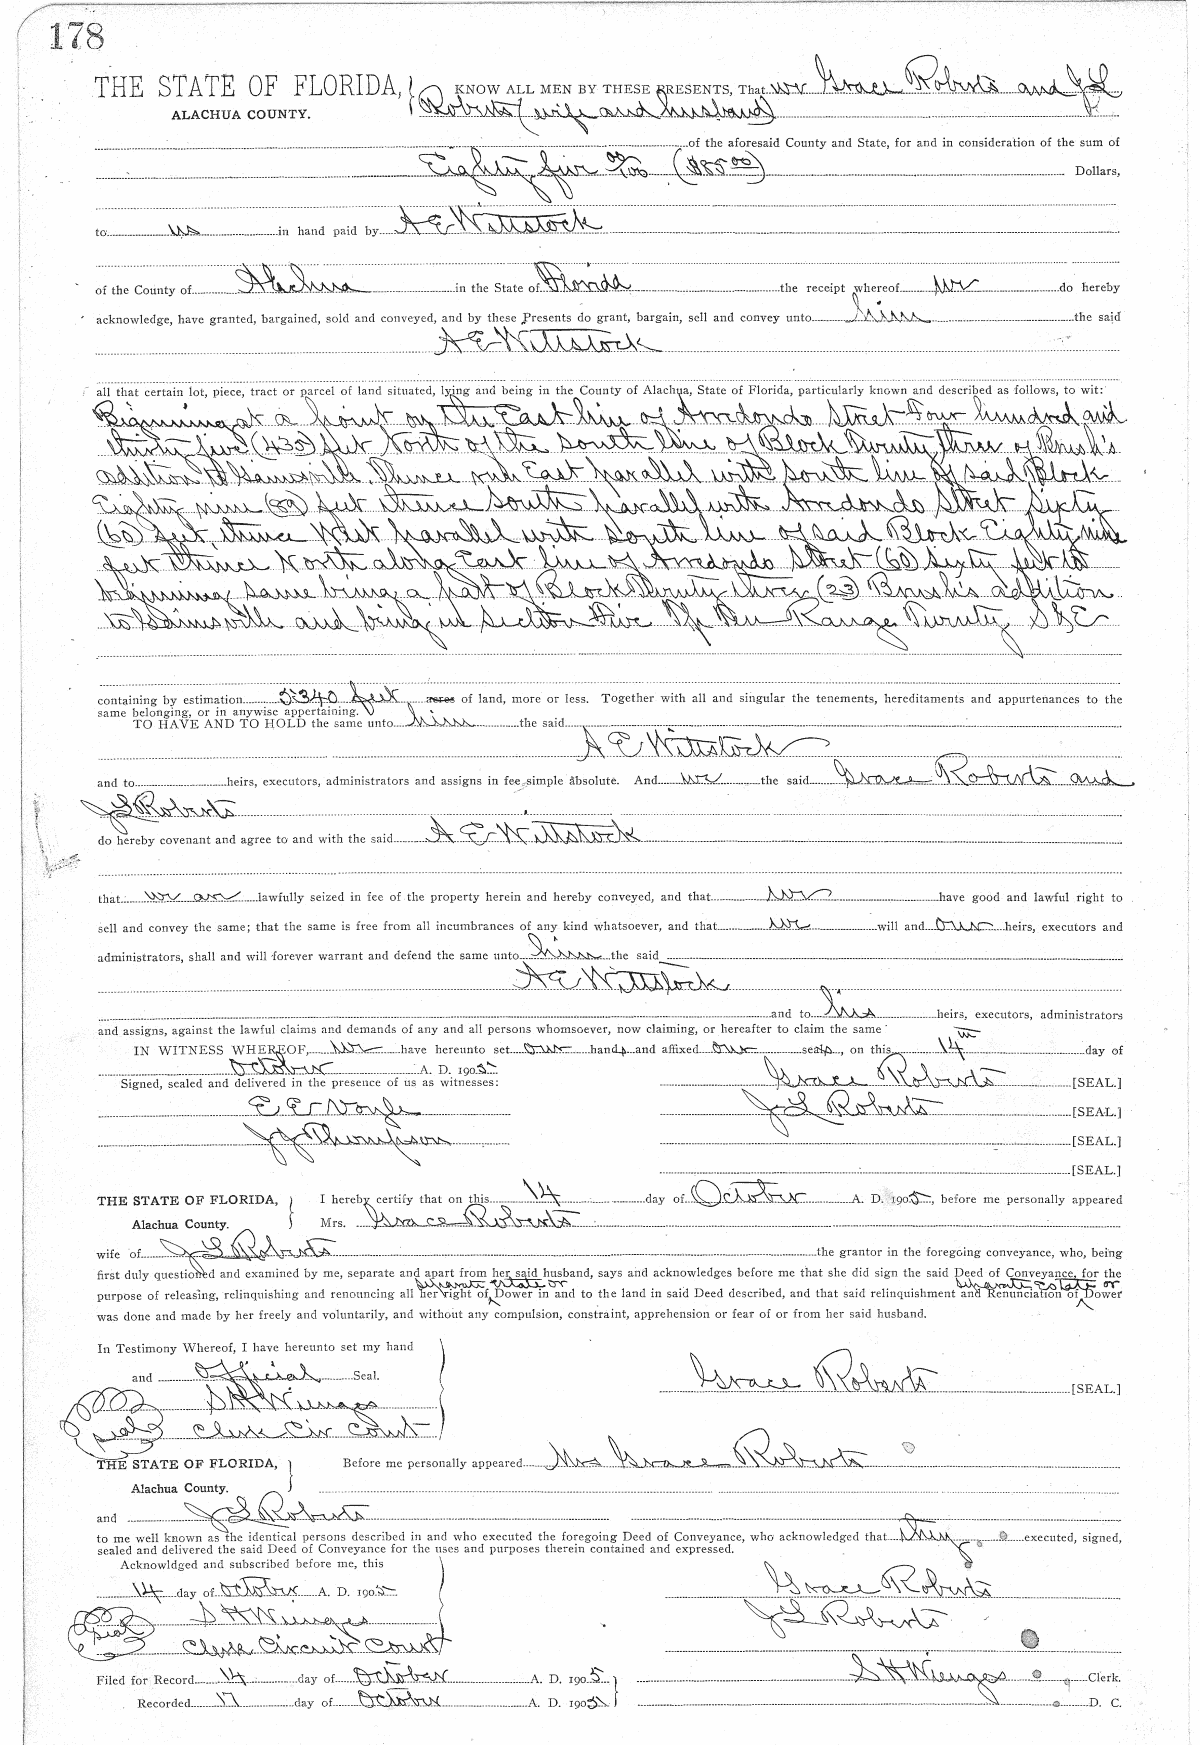 178
THE STATE OF FLORIDA, KNOW ALL MEN BY THESE PRESENTS, That we Grace Roberts and J L
ALACHUA COUNTY. Roberts (wife and husband)
of the aforesaid County and State, for and in consideration of the sum of
Eighty five 00/100 ($85.00) Dollars,
to us in hand paid by A E Wittstock
of the County of Alachua in the State of Florida the receipt whereof we do hereby
acknowledge, have granted, bargained, sold and conveyed, and by these Presents do grant, bargain, sell and convey unto him the said
A E Wittstock
all that certain lot, piece, tract or parcel of land situated, lying and being in the County of Alachua, State of Florida, particularly known and described as follows, to wit:
Beginning at a point on the East line of Arredondo Street Four hundred and
thirty five (435) feet North of the south line of Block Twenty three of Brush's
addition to Gainesville. Thence run East parallel with south line of said Block
Eighty nine (89) feet thence South parallel with Arredondo Street Sixty
(60) feet, thence West parallel with South line of said Block Eighty nine
feet thence North along East line of Arredondo Street (60) sixty feet to
beginning same being a part of Block Twenty three (23) Brush's addition
to Gainesville and being in Section Five Tp Ten Range Twenty S & E
containing by estimation 5340 feet acres of land, more or less. Together with all and singular the tenements, hereditaments and appurtenances to the
same belonging, or in anywise appertaining.
TO HAVE AND TO HOLD the same unto him the said
A E Wittstock
and to heirs, executors, administrators and assigns in fee simple absolute. And we the said Grace Roberts and
J L Roberts
do hereby covenant and agree to and with the said A E Wittstock
that we are lawfully seized in fee of the property herein and hereby conveyed, and that we have good and lawful right to
sell and convey the same; that the same is free from all incumbrances of any kind whatsoever, and that we will and our heirs, executors and
administrators, shall and will forever warrant and defend the same unto him the said
A E Wittstock
and to his heirs, executors, administrators
and assigns, against the lawful claims and demands of any and all persons whomsoever, now claiming, or hereafter to claim the same
IN WITNESS WHEREOF, we have hereunto set our hands and affixed our seals, on this 14th day of
October A. D. 1905
Signed, sealed and delivered in the presence of us as witnesses: Grace Roberts [SEAL.]
E E Voyle J L Roberts [SEAL.]
J J Thompson [SEAL.]
[SEAL.]
THE STATE OF FLORIDA, I hereby certify that on this 14 day of October A. D. 1905, before me personally appeared
Alachua County. Mrs. Grace Roberts
wife of J L Roberts the grantor in the foregoing conveyance, who, being
first duly questioned and examined by me, separate and apart from her said husband, says and acknowledges before me that she did sign the said Deed of Conveyance, for the
separate estate or separate Estate or
purpose of releasing, relinquishing and renouncing all her right of Dower in and to the land in said Deed described, and that said relinquishment and Renunciation of Dower
was done and made by her freely and voluntarily, and without any compulsion, constraint, apprehension or fear of or from her said husband.
In Testimony Whereof, I have hereunto set my hand
and Official Seal. Grace Roberts [SEAL.]
S H Wienges
seal Clerk Cir Court
THE STATE OF FLORIDA, Before me personally appeared Mrs Grace Roberts
Alachua County.
and J L Roberts
to me well known as the identical persons described in and who executed the foregoing Deed of Conveyance, who acknowledged that they executed, signed,
sealed and delivered the said Deed of Conveyance for the uses and purposes therein contained and expressed.
Acknowldged and subscribed before me, this
14 day of October A. D. 1905 Grace Roberts
S H Wienges J L Roberts
seal Clerk Circuit Court
Filed for Record 14 day of October A. D. 1905 S H Wienges Clerk.
Recorded 17 day of October A. D. 1905 D. C.